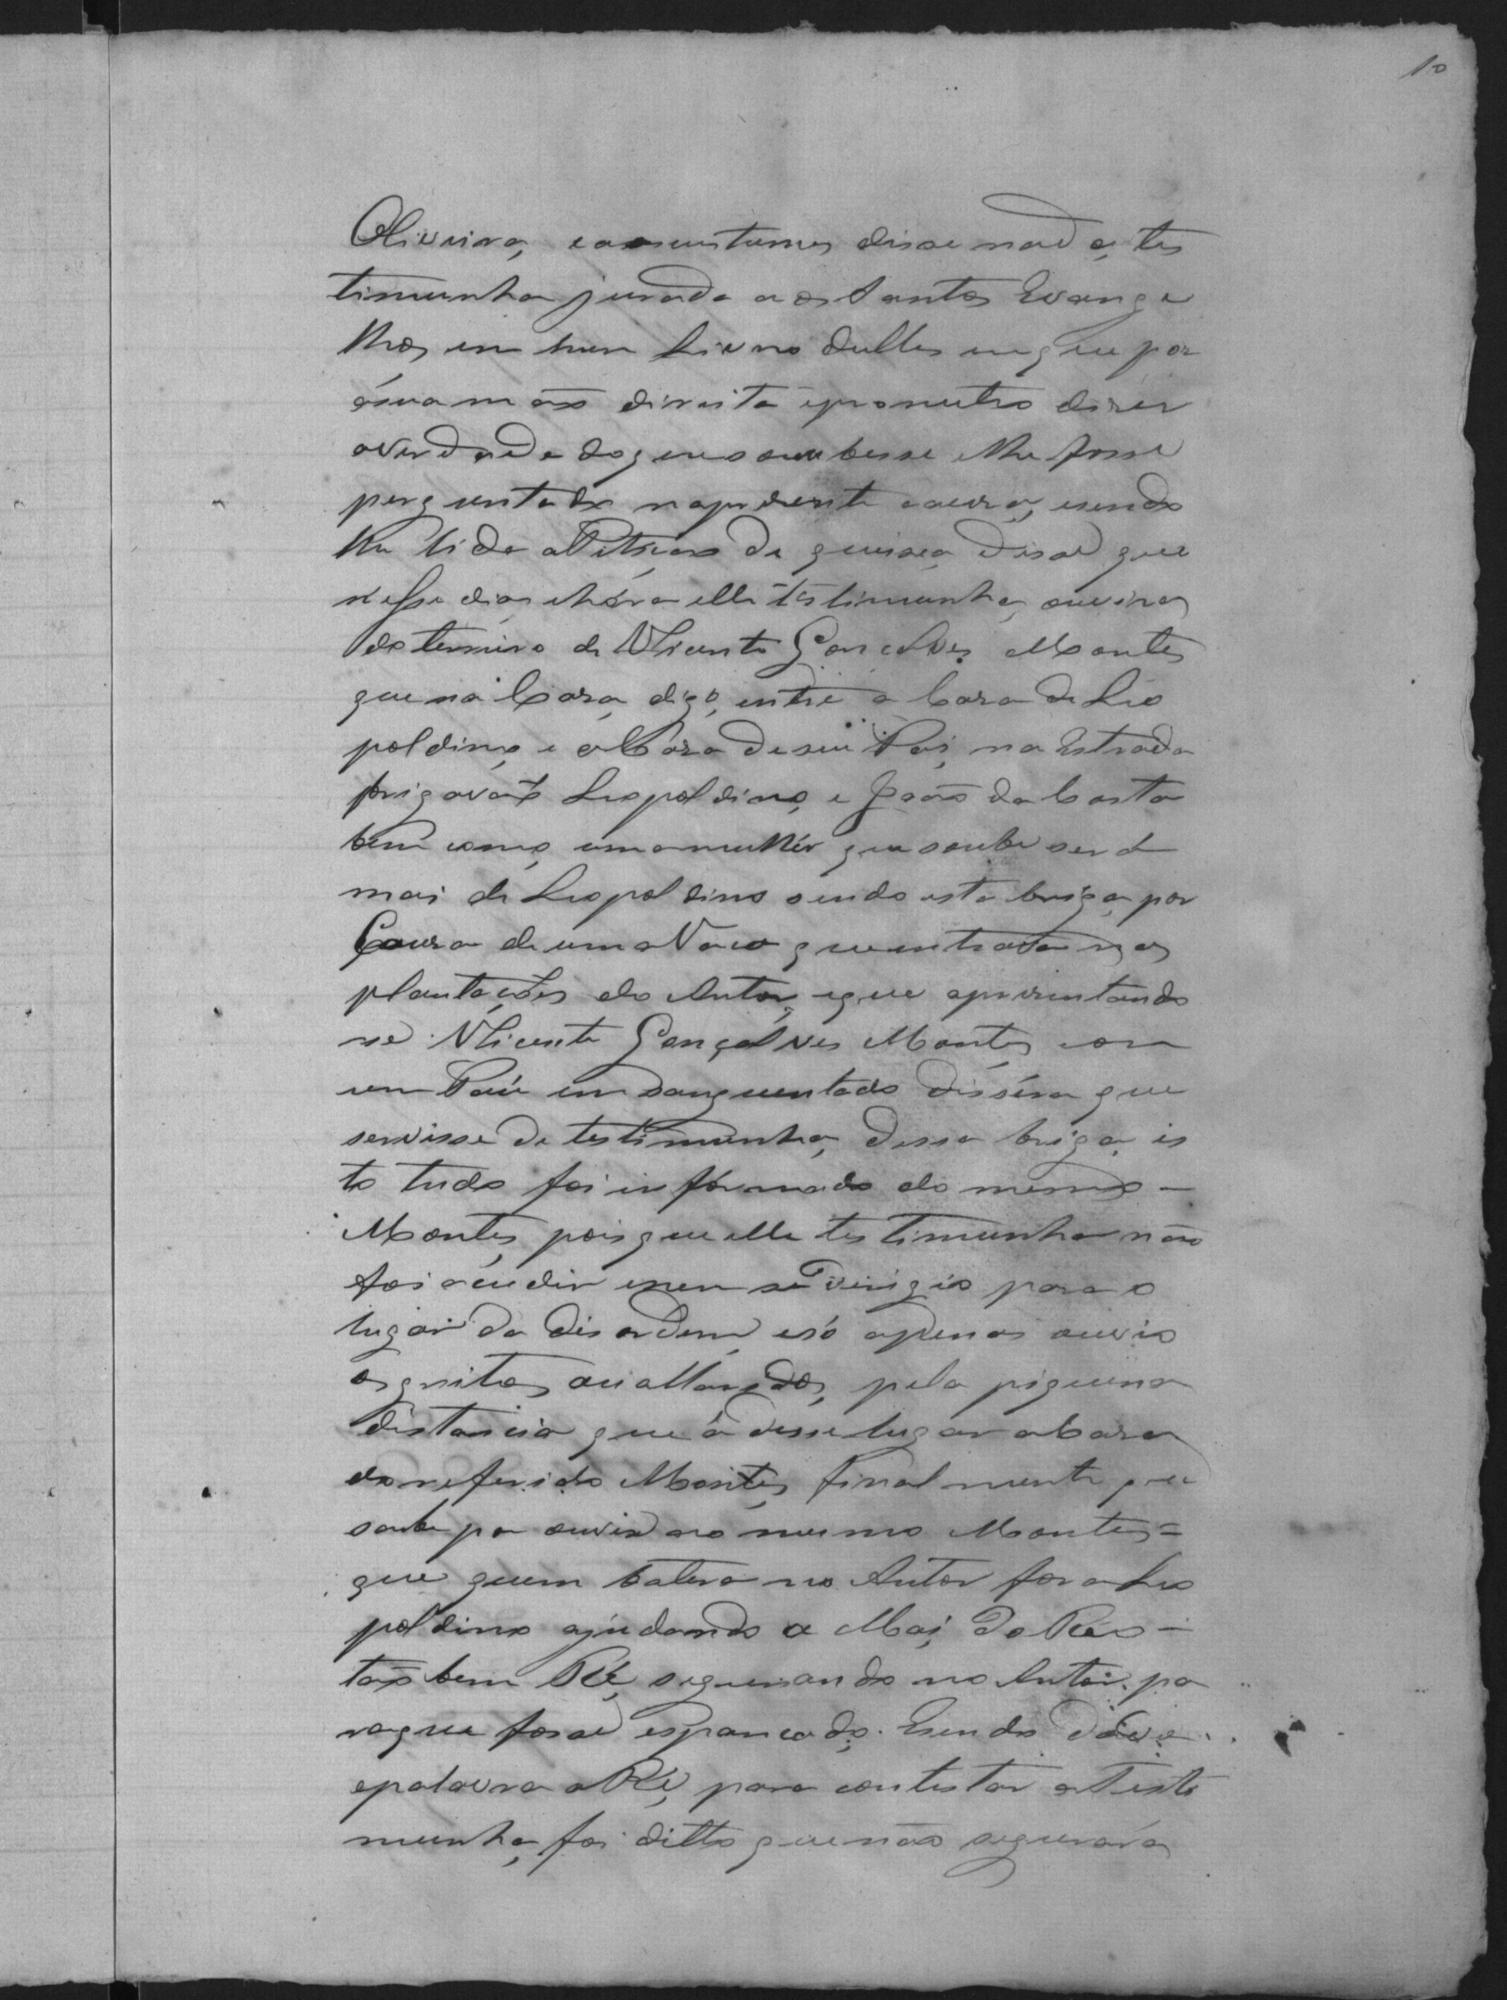 10
Oliveira, eaoscustumes disse nada, tes
timunha jurada aos Santos Evange
lhos em hum Livro delles em que por
ásuamaõ direita eprometeo diser
averdade doquesoubesse elhe fosse
perguntado napresente causa, esendo
lhe lida a Petiçaõ de queixa, disse que
nesse dia, ehóra elle testimunha, ouvira
do terreiro de Vicente Gonçalves Montes
que na Casa, digo, entre a Casa de Leo
poldino, e a Cása deseu Pai, na Estrada
brigavaõ Leopoldino, e Joaõ da Costa
bem como, uma mulhér que soube ser á
mai de Leopoldino sendo esta briga, por
Causa de uma Vaca que entrava nas
plantações do Autor, eque apresentando
se Vicente Gonçalves Montes com
um Páu emsanguentado disséra que
servisse de testimunha, dessa briga, is
to tudo foi informado do mesmo -
Montes, pois que elle testimunha não
foi acudir enem se derigio para o
lugar da disordem, esó apenas ouvio
os gritos, ou allaridos, pela piquena
distancia que á desse lugar a Casa
doreferido Montes, finalmente que
sabe por ouvir ao mesmo Montes =
que quem batera no Autor fora Leo
poldino ajudando a Mai, da Ré o -
taõ bem Ré, segurando no Autor pa
raque fosse espancado. Esendo dáda
apalavra a Ré, para contestar a Teste
munha, foi ditto que não segurára